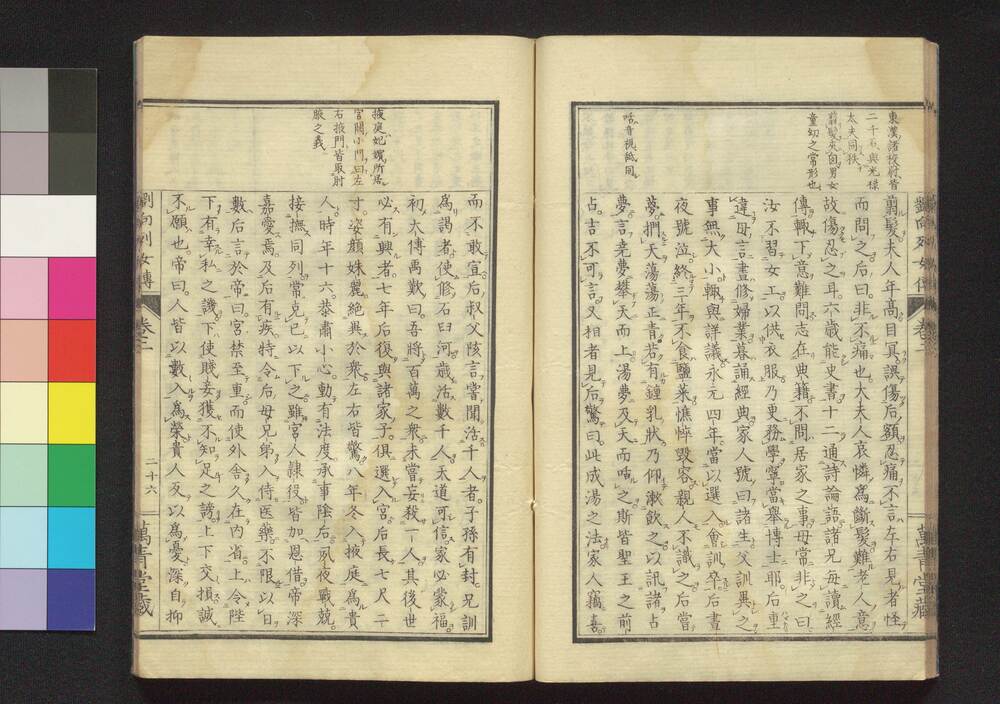 東漢諸校府皆
二千石與光祿
太夫同秩
翦髮夾囟男女
童幼之常形也
咶音視舐同
翦髮夫人年高目冥誤傷后額忍痛不言左右見者怪
而問之后曰非不痛也大夫人哀憐為斷髮難老人意
故傷忍之耳六歲能史書十二通詩論語諸兄每讀經
傳輒下意難問志在典籍不問居家之事母常非之曰
汝不習女工以供衣服乃更務學寧當舉博士耶后重
違母言晝修婦業暮誦經典家人號曰諸生父訓異之
事無大小輒與詳議永元四年當以選入會訓卒后晝
夜號泣終三年不食鹽菜憔悴毀容親人不識之后嘗
夢捫天蕩蕩正青若有鐘乳狀乃仰漱飲之以訊諸占
夢言堯夢攀天而上湯夢及天而咶之斯皆聖王之前
占吉不可言又相者見后驚曰此成湯之法家人竊喜
掖庭妃嬪所居
宮闈小門曰左
右掖門皆取肘
腋之義
而不敢宣后叔父陔言嘗聞活千人者子孫有封兄訓
為謁者使修石臼河歲活數千人天道可信家必蒙福
初太傅禹歎曰吾將百萬之衆未嘗妄殺一人其後世
必有興者七年后復與諸家子俱選入宮后長七尺二
寸姿顏姝麗絕異於衆左右皆驚八年冬入掖庭為貴
人時年十六恭肅小心動有法度承事陰后夙夜戰兢
接撫同列常克已以下之雖宮人隸役皆加恩借帝深
嘉愛焉及后有疾特令后母兄弟入侍医藥不限以日
數后言於帝曰宮禁至重而使外舍久在內省上令陛
下有幸私之譏下使賤妾獲不知足之謗上下交損誠
不願也帝曰人皆以數入為榮貴人反以為憂深自抑
劉向列女傳
卷二
二十六
萬青堂藏